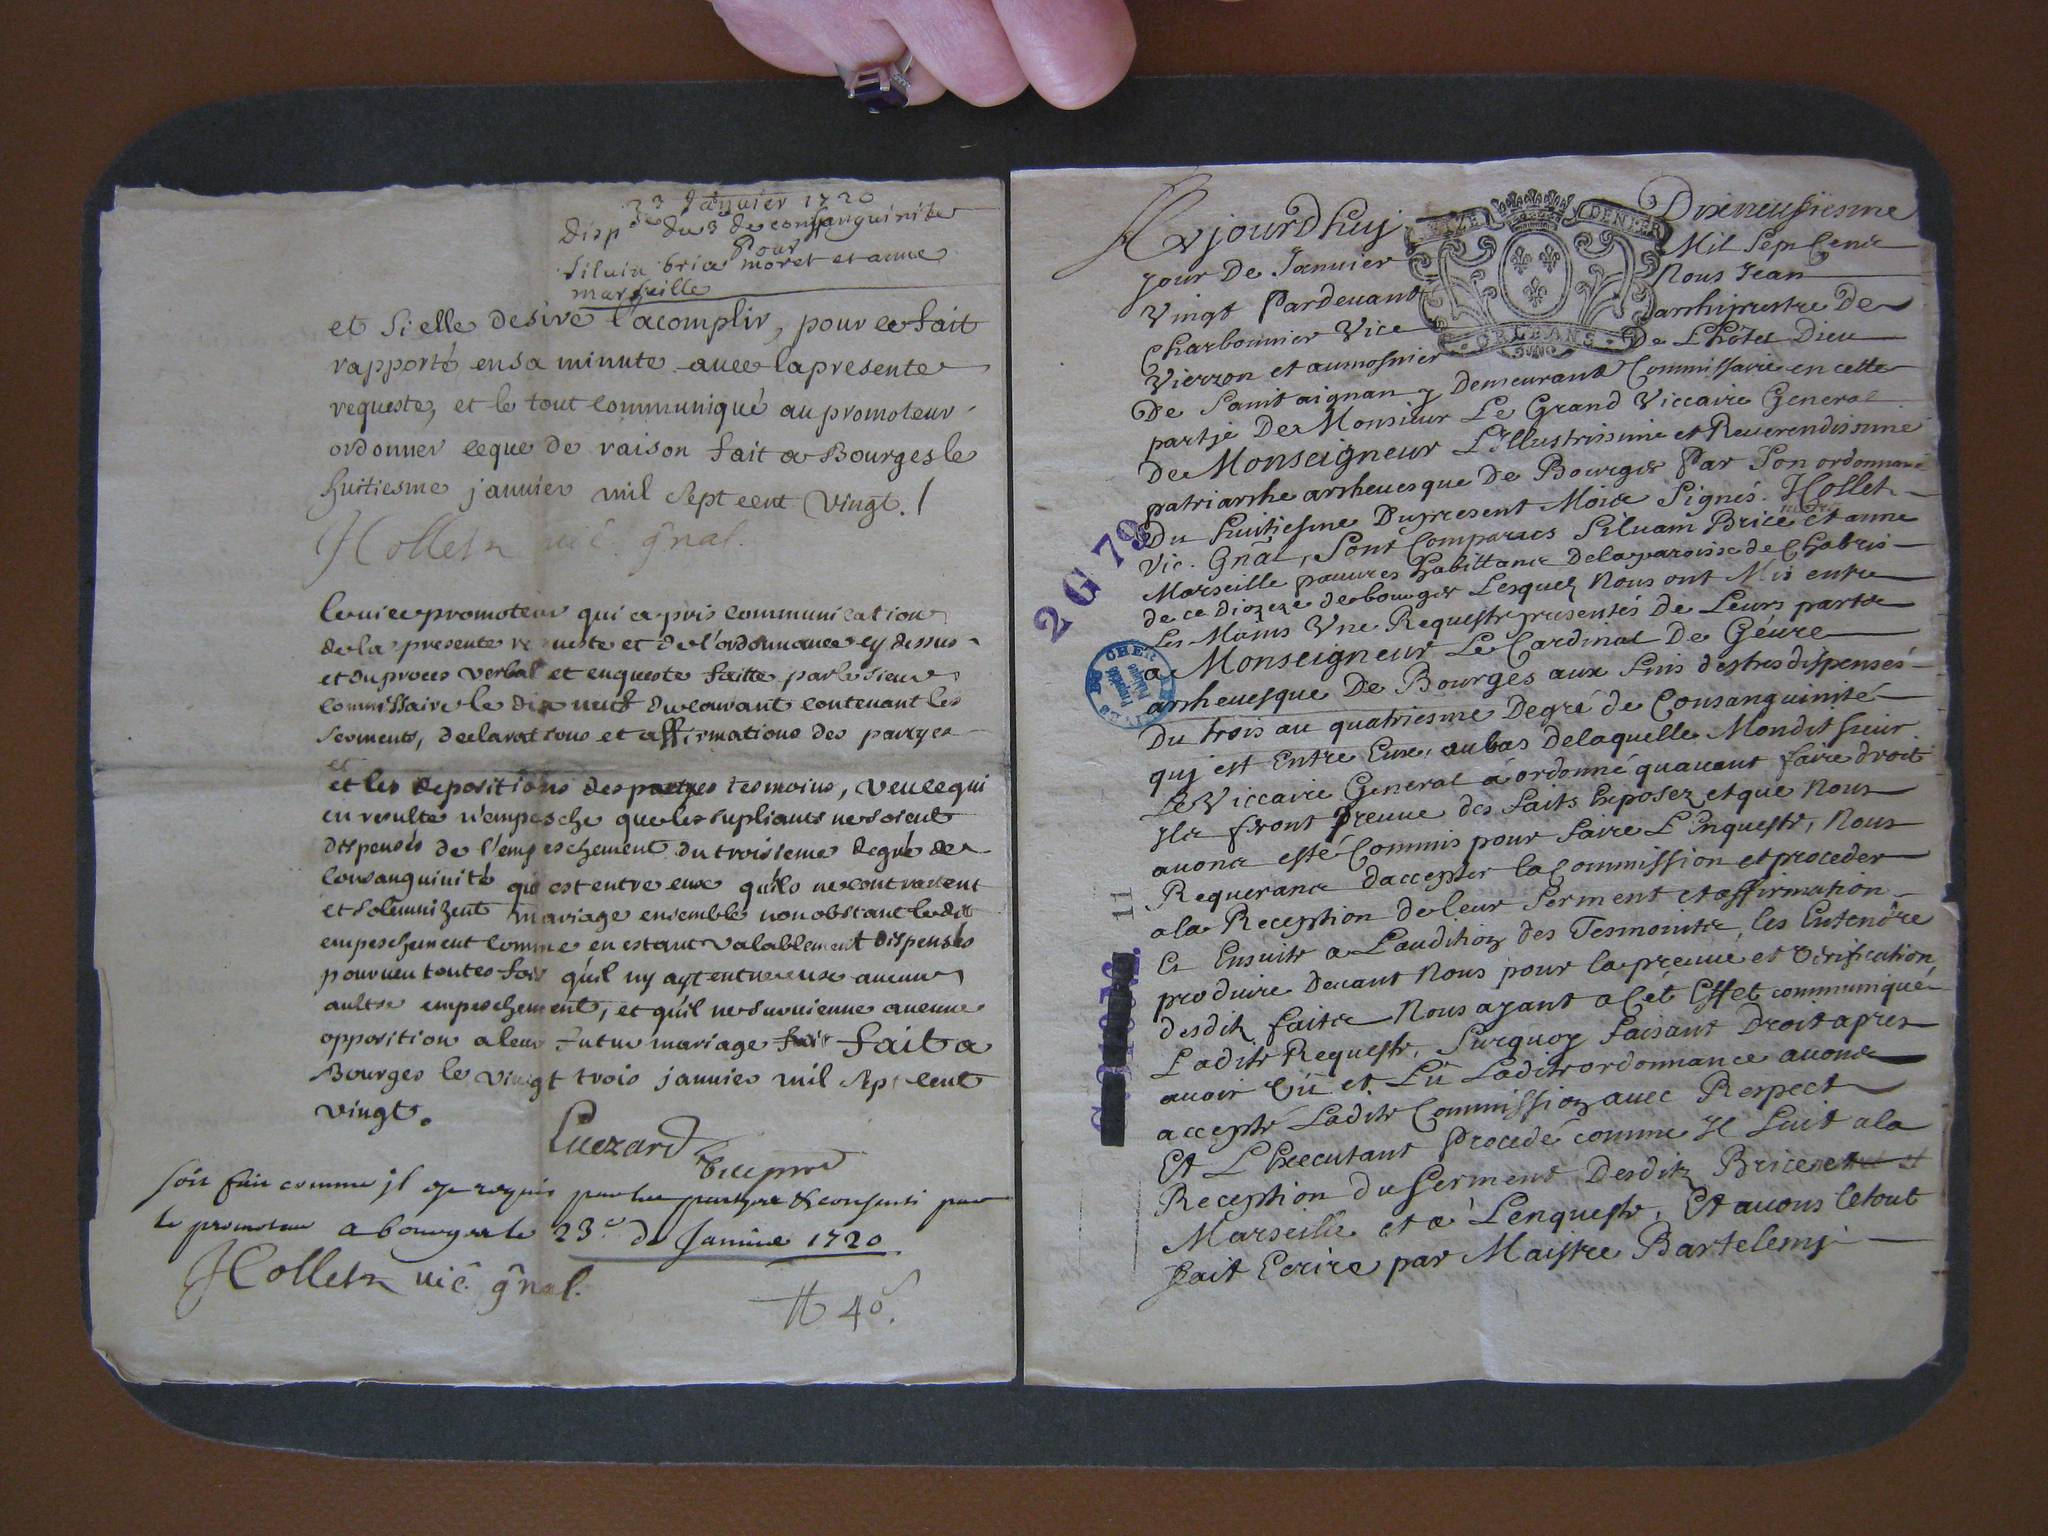 23 Janvier 1720
disp du 3 de consanguinite
Pour
Siluin brice moret et anne
marseille
et si elle desire l'acomplir, pour ce fait
rapporté en sa minute avec la presente
requeste, et le tout communiqué au promoteur
ordonner ce que de raison fait a Bourges le
huitiesme janvier mil sept cent vingt. /
Hollet vic. gñal.
le vice promoteur qui a pris communication
de la presente requeste et de l'ordonnance cy dessus
et du proces verbal et enqueste faitte par le sieur
commissaire le dix neuf du courant contenant les
serments, declarations et affirmations des partyes
et
et les depositions des partyes tesmoins, veu ce qui
en resulte n'empesche que les supliants ne soient
dispensés de l'empeschement du troisieme degré de
consanguinité qui est entre eux qu'ils ne contractent
et solemnizent mariage ensemble nonobstant ledit
empeschement comme en estant valablement dispensés
pourveu toutes fois qu'il ny ayt entre eux aucun
aultre empeschement, et qu'il ne survienne aucune
opposition a leur futur mariage fait fait a
Bourges le vingt trois janvier mil sept cent
vingt.
Soit fait comme il est requis par les partyes & consenti par
le promoteur a bourges le 23e de Janvier 1720
Hollet vic. gñal.
40s.
Aujourdhuy Dixneufiesme
SEIZE DENIER
jour De Janvier Mil Sept Cens
Vingt Pardevant Nous Jean
Charbonnier Vice archiprestre De
ORLEANS
Vierzon et aumosnier De L'hôtel Dieu
De Saint aignan y Demeurant Commissaire en cette
partie De Monsieur Le Grand Viccaire General
De Monseigneur L'Illustrissime et Reverendissime
patriarche archevesque De Bourges Par Son ordonnance
Du huitiesme Du present Mois Signés. Hollet
Vic. Gñal, Sont Comparus Siluain Brice et anne
Marseille pauvres habittans de la paroisse de Chabris
de ce diozeze de bourges Lesquelz Nous ont Mis entre
Les Mains Une Requeste presentés de Leurs parts
a Monseigneur Le Cardinal De Gévre
archevesque De Bourges aux fins d'estres dispensés
Du trois au quatriesme Degré de Consanguinité
quj est Entre Eux, au bas de laquelle Mondit sieur
Le Viccaire General a ordonné quavant faire droit
Ils feront preuve des faits Exposez et que Nous
avons esté Commis pour faire L'Enqueste, Nous
Requerans daccepter la Commission et proceder
a la Reception de leur serment et affirmation
Et Ensuite a L'audition des Tesmoints, les Entendre
produire devant Nous pour la preuve et Vérification
desdits faits Nous ayant a Cét Effet communiqué
Ladite Requeste, Surquoy faisant Droit apres
avoir Vû et Lû Ladite ordonnance avons
accepté Ladite Commission avec Respect
Et L'Executant Procedé comme Il Suit a la
Reception du serment Desdits Brice et
Marseille et a L'enqueste, Et avons le tout
fait Ecrire par Maistre Bartelemj
2 G 79
CHER
11